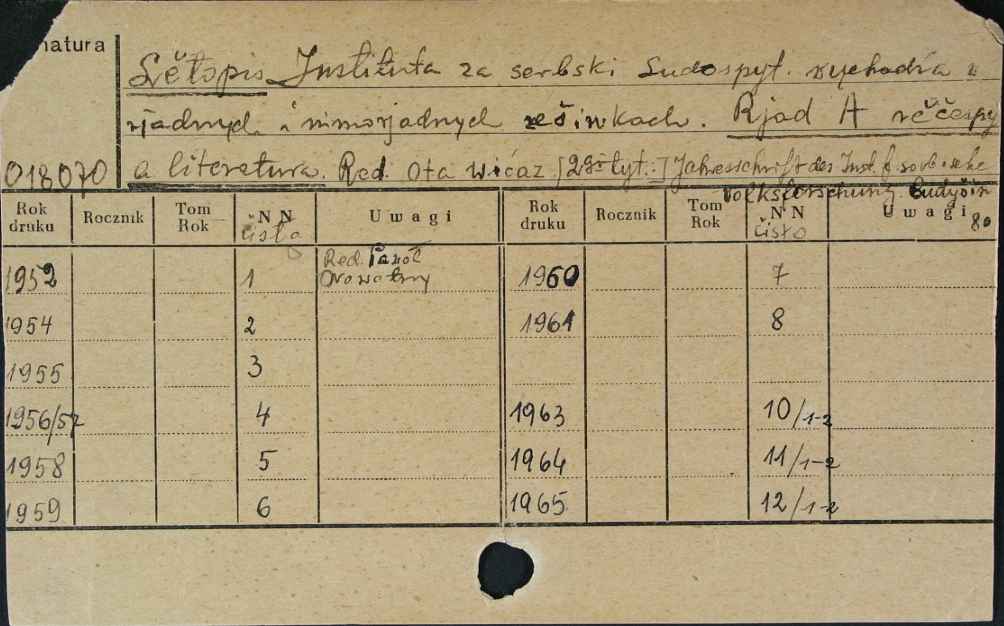 natura
Lětopis Instituta za serbski ludospyt. wuchadźa w
rjadnych i nimorjadnych zešiwkach. Rjad A rěčespyt
018070 a literatura. Red. Ota Wićaz [2gi tyt.:] Jahresschrift des Inst. f. sorbische
Volksforschung. Budyšin
80
Rok druku Rocznik Tom Rok NN čisło Uwagi Rok druku Rocznik Tom Rok NN čisło Uwagi
Red. Pawoł
1952 1 Nowotny 1960 7
1954 2 1961 8
1955 3
1956/57 4 1963 10/1-2
1958 5 1964 11/1-2
1959 6 1965 12/1-2